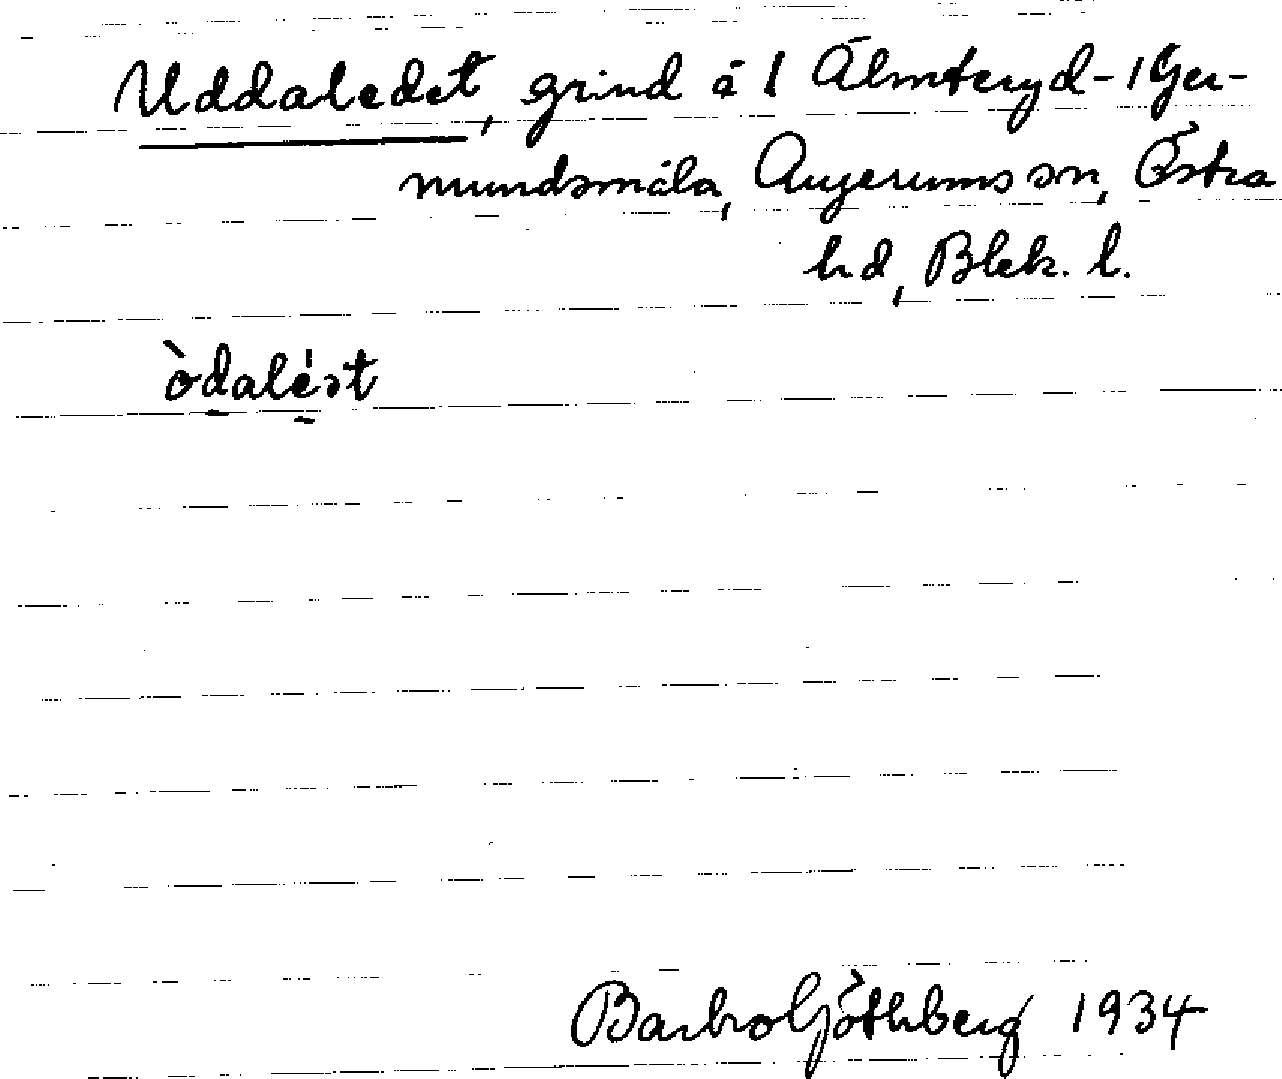 Uddaledet, grind å 1 Älmteryd - 1 Ger-
mundsmåla, Augerums sn, Östra
hd, Blek. l.
òdaléət
Barbro Göthberg 1934